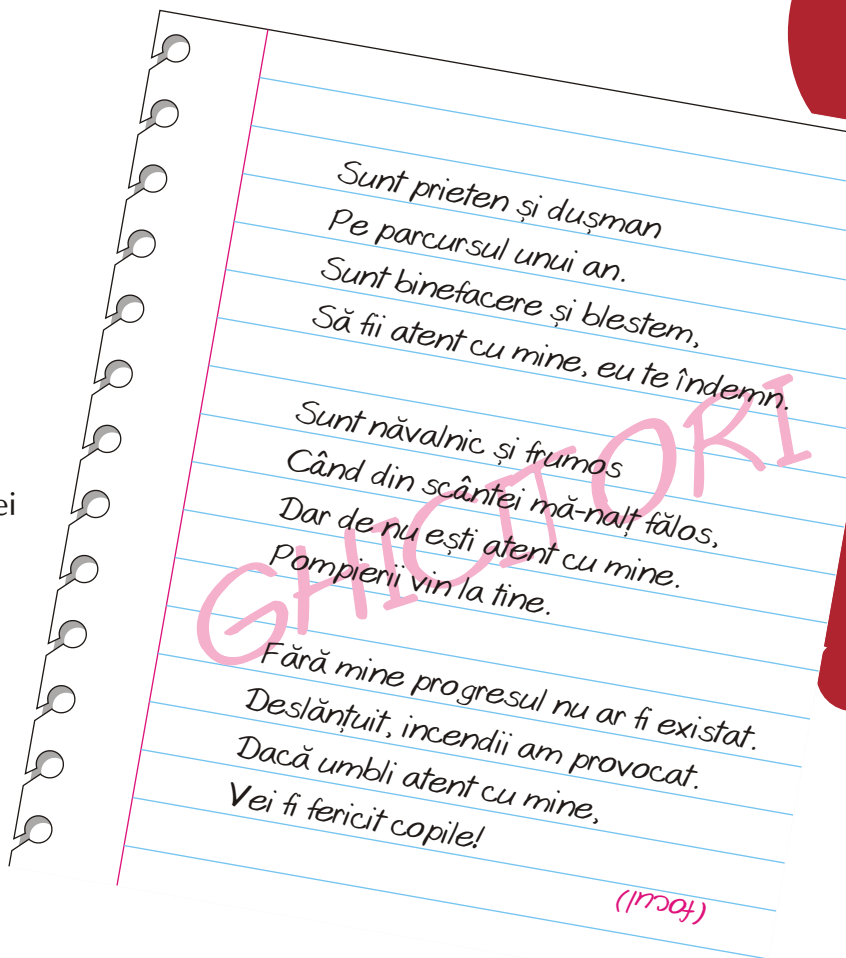 ei
Sunt prieten și dușman
Pe parcursul unui an.
Sunt binefacere și blestem,
Să fii atent cu mine, eu te îndemn.
Sunt năvalnic și frumos
Când din scântei mă-nalț fălos,
Dar de nu ești atent cu mine.
Pompierii vin la tine.
Fără mine progresul nu ar fi existat.
Deslănțuit, incendii am provocat.
Dacă umbli atent cu mine,
Vei fi fericit copile!
GHICITORI
(focul)